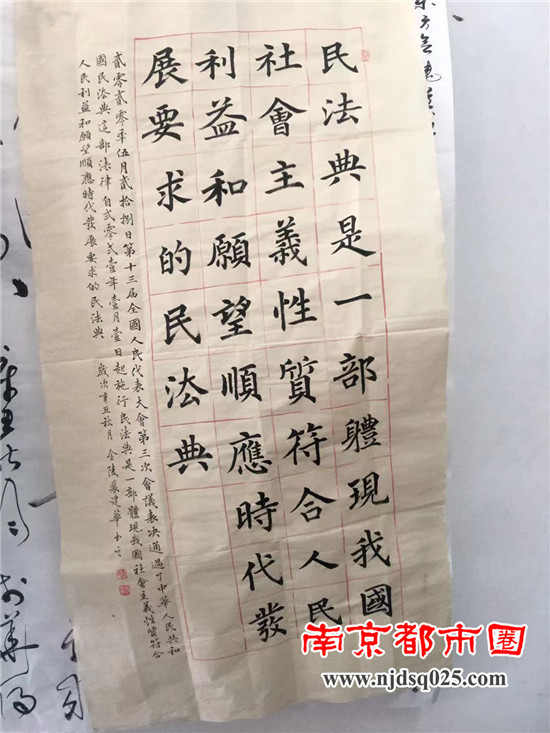 民法典是一部體現我國
社會主義性質符合人民
利益和願望順應時代發
展要求的民法典
貳零貳零年伍月貳拾捌日第十三屆全國人民代表大會第三次會議表決通過了中華人民共和
國民法典這部法律自貳零貳壹年壹月壹日起施行民法典是一部體現我國社會主義性質符合
人民利益和願望順應時代發展要求的民法典 歲次辛丑秋月 金陵 建華
南京都市圈
www.njdsq025.com